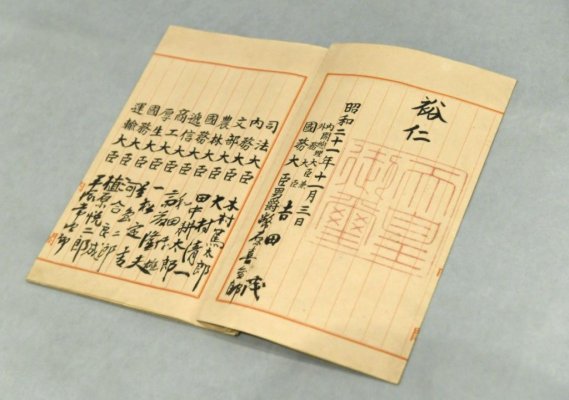 裕仁
天皇
御璽
昭和二十一年十一月三日
内閣總理大臣兼
外務大臣 吉田茂
國務大臣 男爵 幣原喜重郎
司法大臣 木村篤太郎
内務大臣 大村清一
文部大臣 田中耕太郎
農林大臣 和田博雄
國務大臣 斎藤隆夫
遞信大臣 一松定吉
商工大臣 星島二郎
厚生大臣 河合良成
國務大臣 植原悦二郎
運輸大臣 平塚常次郎